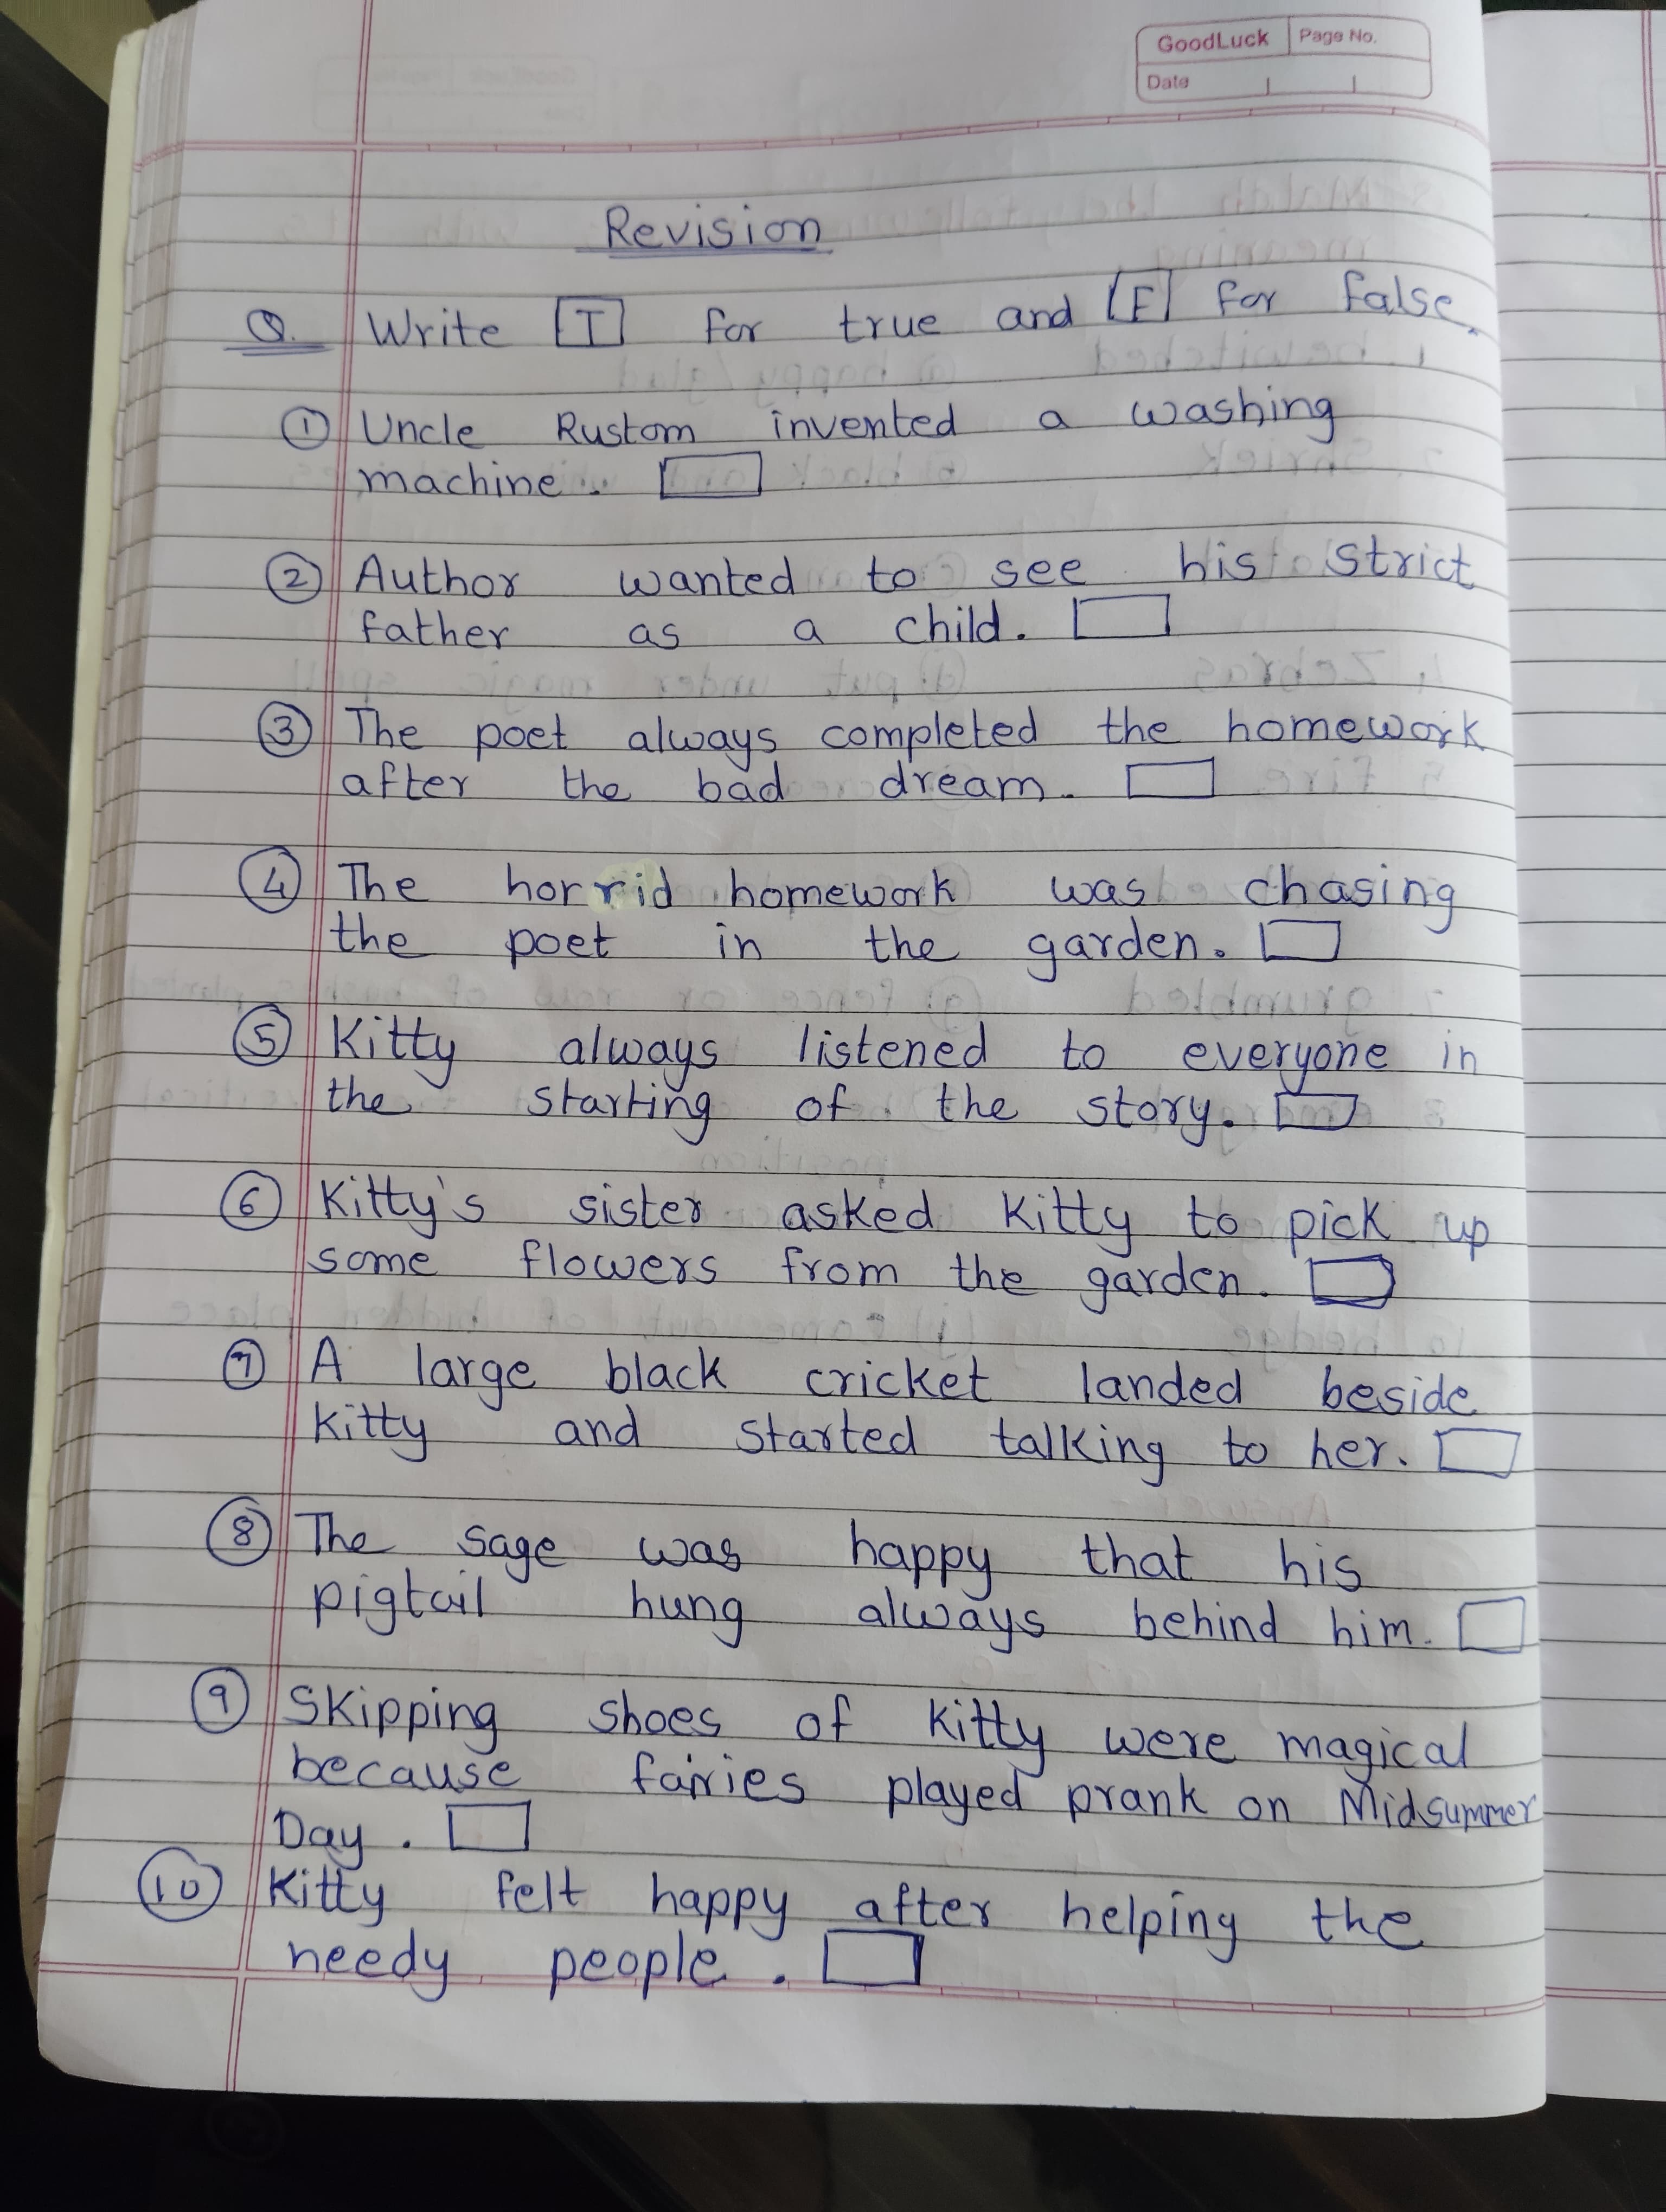 GoodLuck Page No.
Date
Revision
Q. Write T for true and F for false.
① Uncle Rustom invented a washing
machine.
② Author wanted to see his strict
father as a child.
③ The poet always completed the homework
after the bad dream.
④ The horrid homework was chasing
the poet in the garden.
⑤ Kitty always listened to everyone in
the starting of the story.
⑥ Kitty's sister asked Kitty to pick up
some flowers from the garden.
⑦ A large black cricket landed beside
Kitty and started talking to her.
⑧ The sage was happy that his
pigtail hung always behind him.
⑨ Skipping shoes of Kitty were magical
because fairies played prank on Midsummer
Day.
⑩ Kitty felt happy after helping the
needy people.